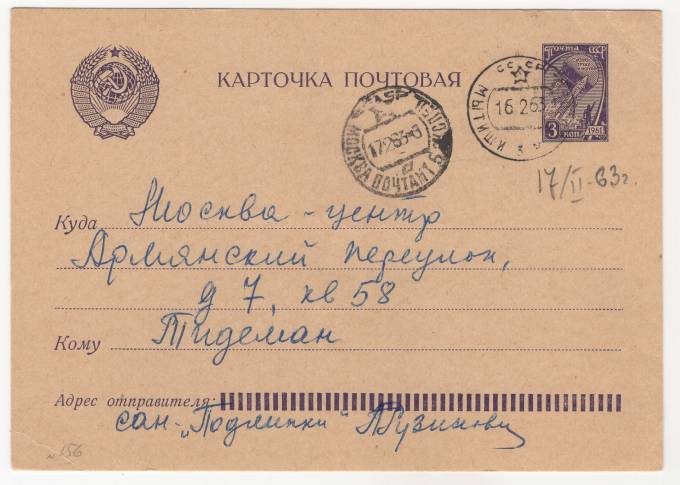 КАРТОЧКА ПОЧТОВАЯ
ПОЧТА СССР
3 КОП
1961
СССР
МЫТИЩИ
16.2.63
МОСКВА ПОЧТАМТ
17263
17/II-63г.
Куда Москва - центр
Армянский переулок,
д 7, кв 58
Кому Тидеман
Адрес отправителя:
сан. „Подлипки"
№156